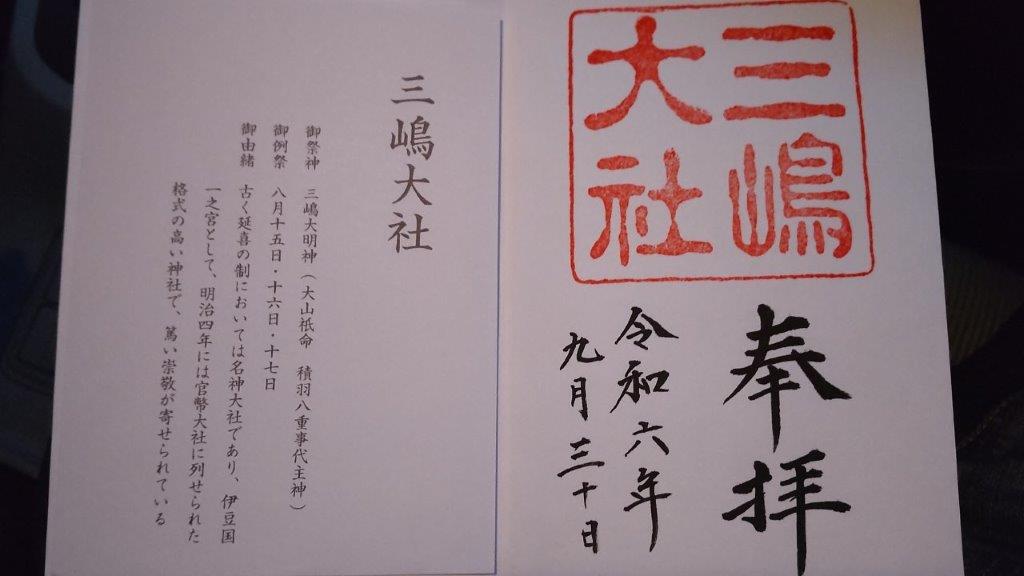 三嶋
大社
奉拝
令和六年
九月三十日
三嶋大社
御祭神 三嶋大明神（大山祇命 積羽八重事代主神）
御例祭 八月十五日・十六日・十七日
御由緒 古く延喜の制においては名神大社であり、伊豆国
一之宮として、明治四年には官幣大社に列せられた
格式の高い神社で、篤い崇敬が寄せられている